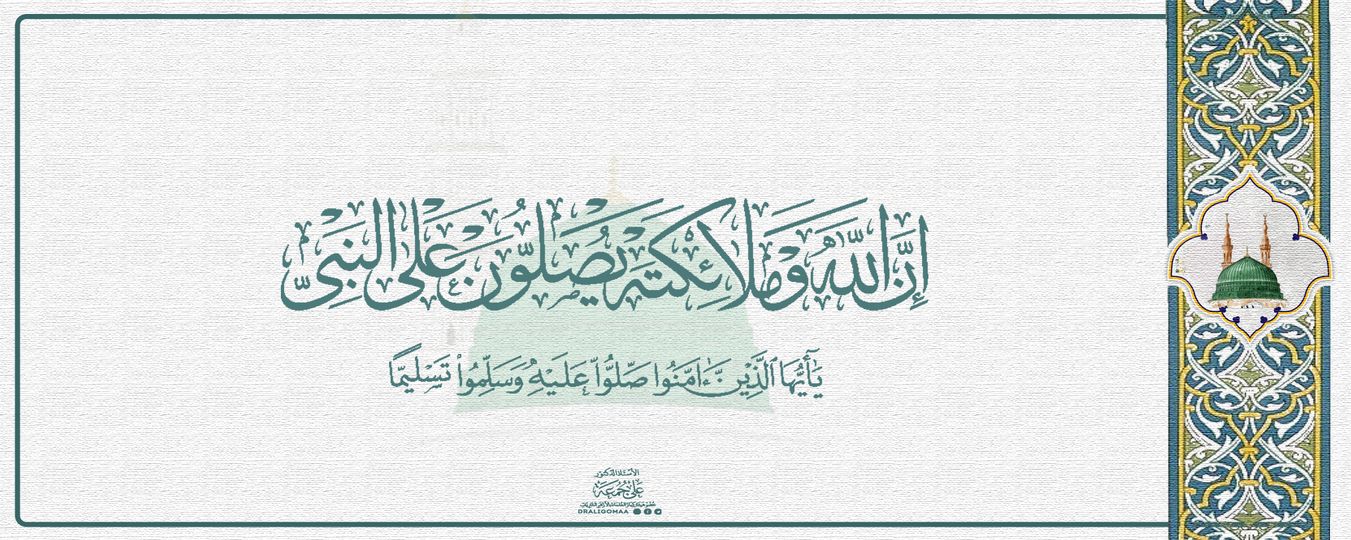 إن الله وملائكته يصلون على النبي
يَٰٓأَيُّهَا ٱلَّذِينَ ءَامَنُوا صَلُّوا عَلَيْهِ وَسَلِّمُوا تَسْلِيمًا
الأستاذ الدكتور
علي جمعة
DRALIGOMAA